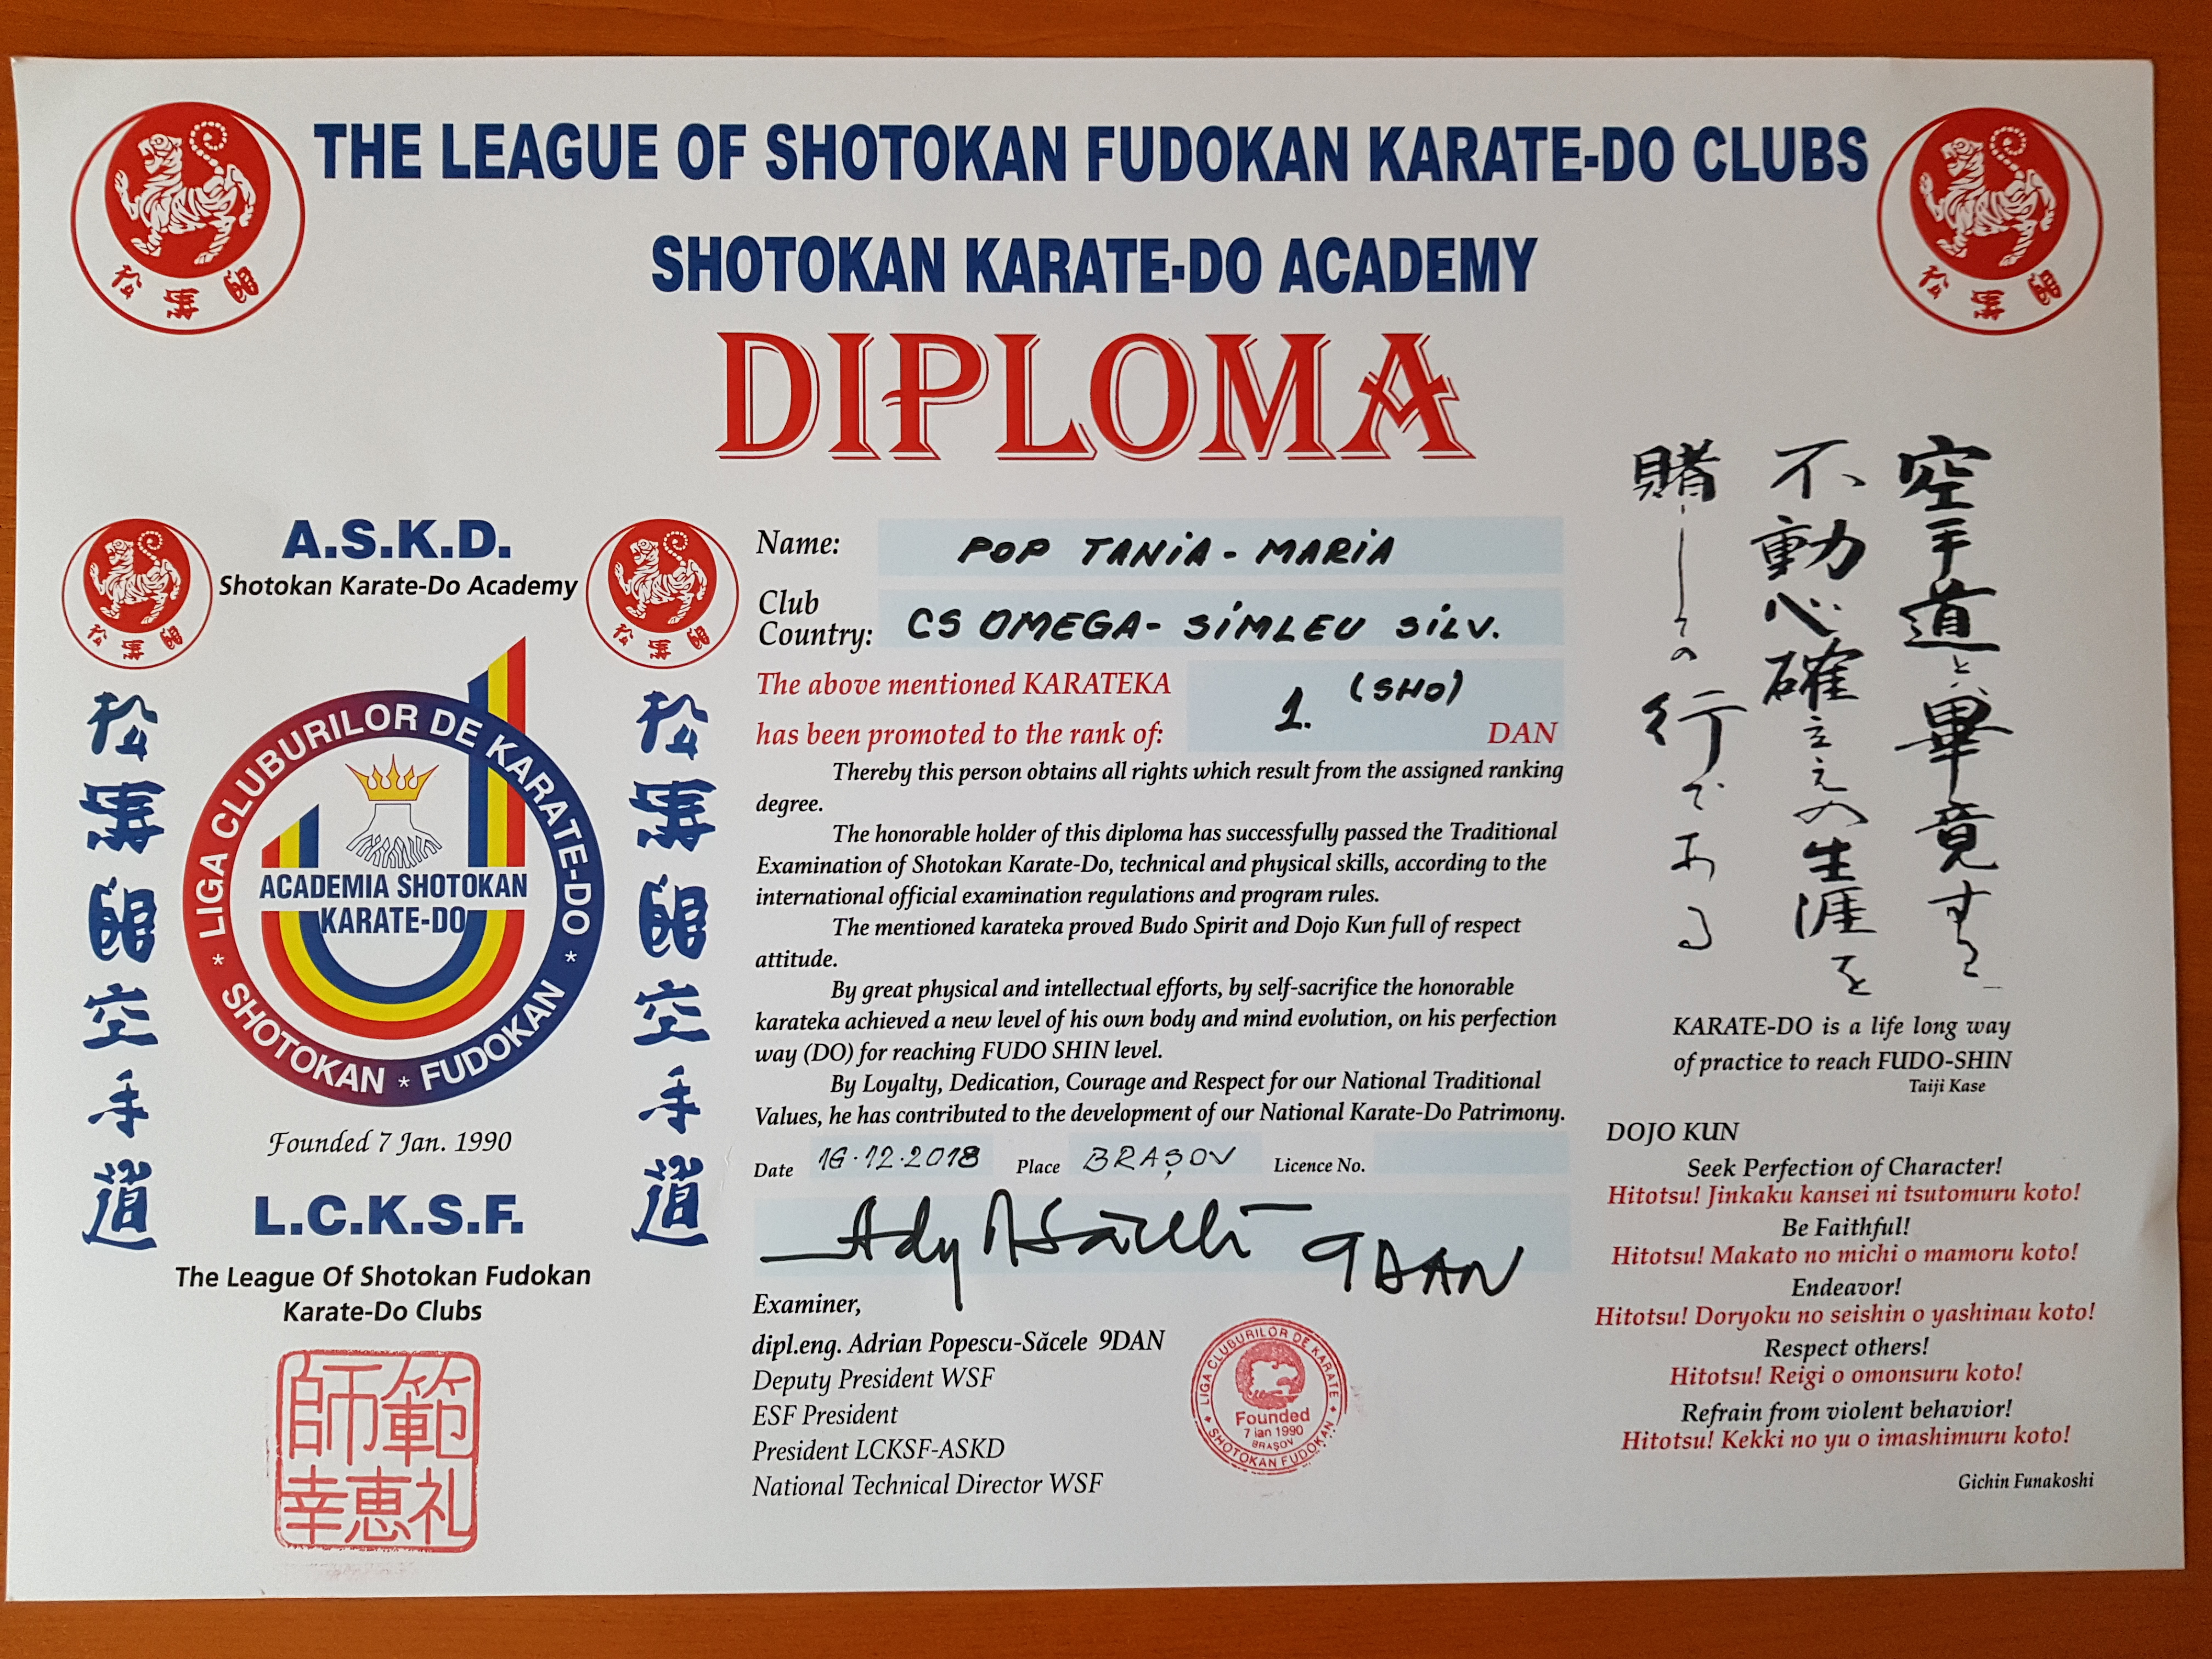 THE LEAGUE OF SHOTOKAN FUDOKAN KARATE-DO CLUBS
SHOTOKAN KARATE-DO ACADEMY
DIPLOMA
松濤館
松濤館
A.S.K.D.
Shotokan Karate-Do Academy
松濤館
松濤館
松濤館空手道
松濤館空手道
LIGA CLUBURILOR DE KARATE-DO
* SHOTOKAN * FUDOKAN *
ACADEMIA SHOTOKAN
KARATE-DO
Founded 7 Jan. 1990
L.C.K.S.F.
The League Of Shotokan Fudokan
Karate-Do Clubs
師範
幸恵礼
Name: POP TANIA-MARIA
Club
Country: CS OMEGA- SIMLEU SILV.
The above mentioned KARATEKA
has been promoted to the rank of: 1. (SHO) DAN
Thereby this person obtains all rights which result from the assigned ranking
degree.
The honorable holder of this diploma has successfully passed the Traditional
Examination of Shotokan Karate-Do, technical and physical skills, according to the
international official examination regulations and program rules.
The mentioned karateka proved Budo Spirit and Dojo Kun full of respect
attitude.
By great physical and intellectual efforts, by self-sacrifice the honorable
karateka achieved a new level of his own body and mind evolution, on his perfection
way (DO) for reaching FUDO SHIN level.
By Loyalty, Dedication, Courage and Respect for our National Traditional
Values, he has contributed to the development of our National Karate-Do Patrimony.
Date 16.12.2018 Place BRAȘOV Licence No.
Ady Săcele 9 DAN
Examiner,
dipl.eng. Adrian Popescu-Săcele 9DAN
Deputy President WSF
ESF President
President LCKSF-ASKD
National Technical Director WSF
LIGA CLUBURILOR DE KARATE
SHOTOKAN FUDOKAN
Founded
7 ian 1990
BRAȘOV
空手道と畢竟すると
不動心確立えの生涯を
賭しての行である
KARATE-DO is a life long way
of practice to reach FUDO-SHIN
Taiji Kase
DOJO KUN
Seek Perfection of Character!
Hitotsu! Jinkaku kansei ni tsutomuru koto!
Be Faithful!
Hitotsu! Makato no michi o mamoru koto!
Endeavor!
Hitotsu! Doryoku no seishin o yashinau koto!
Respect others!
Hitotsu! Reigi o omonsuru koto!
Refrain from violent behavior!
Hitotsu! Kekki no yu o imashimuru koto!
Gichin Funakoshi